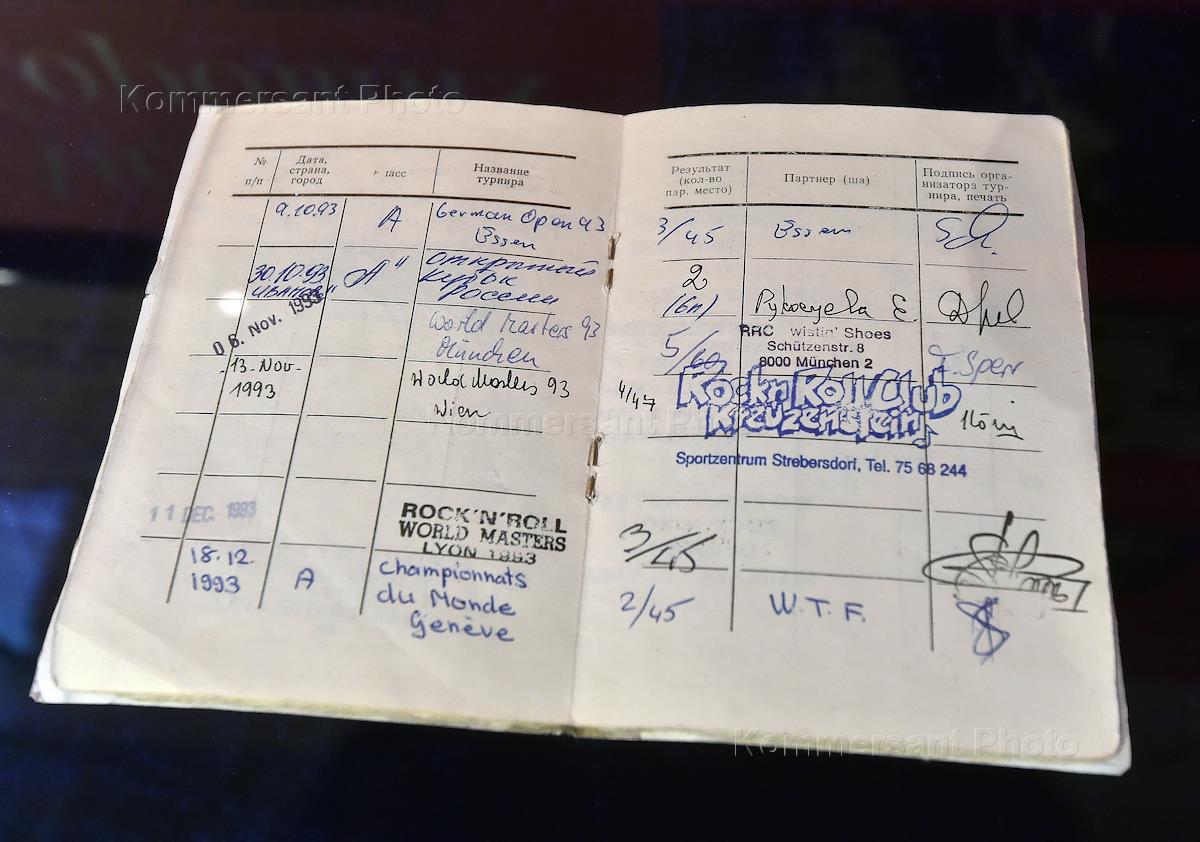 Kommersant Photo
№ п/п
Дата, страна, город
ласс
Название турнира
Результат (кол-во пар, место)
Партнер (ша)
Подпись орга-
низатора тур-
нира, печать
9.10.93 A German Open 93
Essen
3/45 Essen
30.10.93 "А" открытый
Кубок
России
2
(6п)
06. Nov. 1993
World Masters 93
München
5/60
RRC wistin' Shoes
Schützenstr. 8
8000 München 2
F. Sperr
13. Nov.
1993
World Masters 93
Wien
4/47
Rock'n Roll Club
Kreuzenstein
Sportzentrum Strebersdorf, Tel. 75 68 244
Kommersant Photo
11 DEC. 1993
ROCK'N'ROLL
WORLD MASTERS
LYON 1993
3/45
18.12.
1993
A
Championnats
du Monde
Genève
2/45 W.T.F.
Kommersant Photo